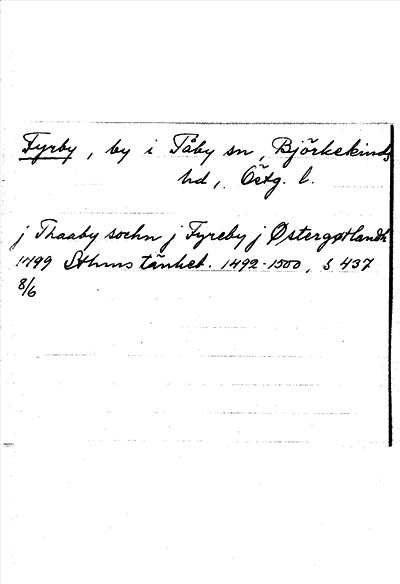 Fyrby, by i Tåby sn, Björkekinds
hd, Östg. l.
j Thaaby sochn j Fyreby j Østergøtlandh
1499 Sthms tänkeb. 1492-1500, s 437
8/6